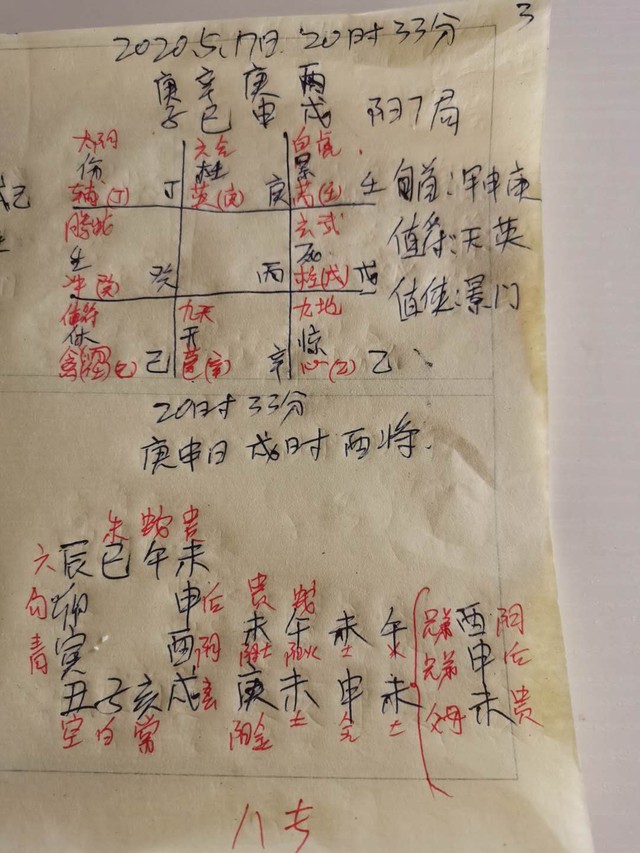 3
2020.5.17日.20时33分
庚 辛 庚 丙
子 巳 申 戌 阴7局
太阴 六合 白虎
伤 杜 景
辅(丁) 丁 英(庚) 庚 芮(壬) 壬
旬首:甲申庚
螣蛇 玄武
生 死
冲(癸) 癸 丙 柱(戊) 戊
值符:天英
值使:景门
值符 九天 九地
休 开 惊
己 蓬(辛) 辛 心(乙) 乙
20时33分
庚申日 戌时 酉将.
朱 蛇 贵
六 辰 巳 午 未
勾 卯 申 后
青 寅 酉 阴
丑 子 亥 戌 玄
空 白 常
贵 蛇
未 午 未 午
土 阳火 土 火
庚 未 申 未
阳金 土 金 土
兄弟 酉 阴
兄弟 申 后
父母 未 贵
八专